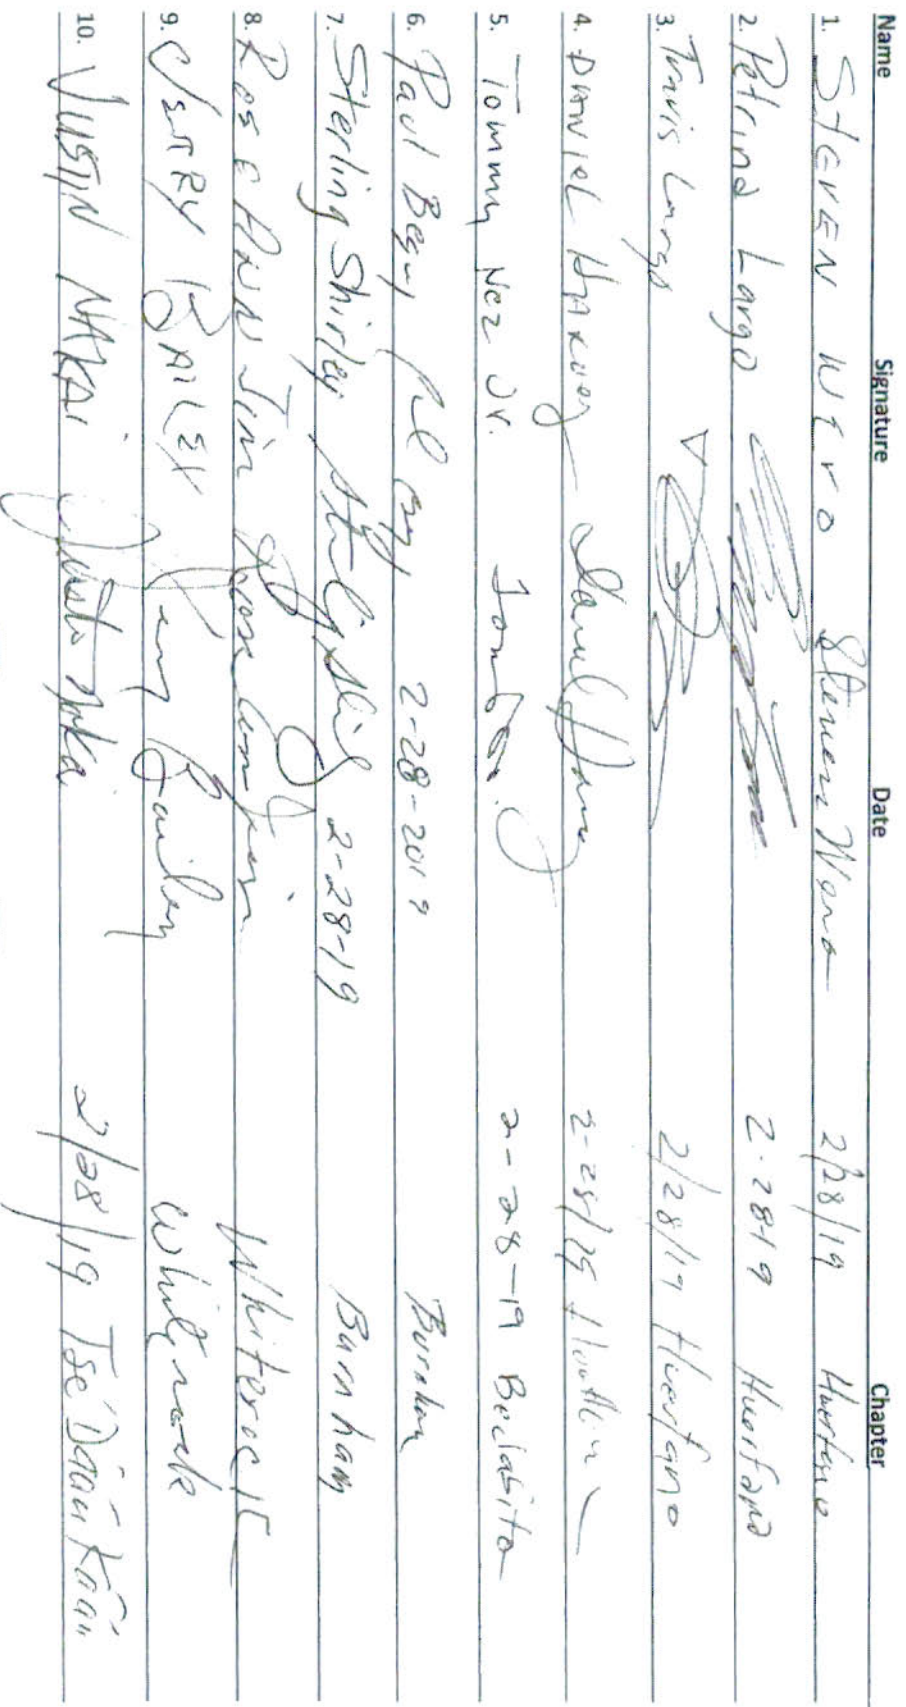 Name Signature Date Chapter
1. STEVEN WERO Steven Wero 2/28/19 Huerfano
2. Petrina Largo 2-28-19 Huerfano
3. Travis Largo 2/28/19 Huerfano
4. DANIEL 2-28/19
5. Tommy Nez Jr. 2-28-19 Beclabito
6. Paul Begay 2-28-2019 Burnham
7. Sterling Shirley 2-28-19 Burnham
8. ROSE ANN Jim Rose Ann Jim Whiterock
9. JERRY BAILEY Jerry Bailey Whiterock
10. JUSTIN NAKAI 2/28/19 Tsé Daan Kaan